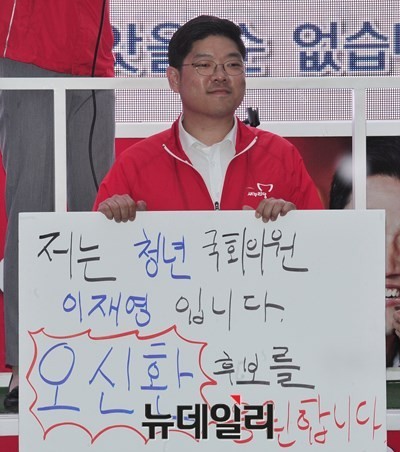 수 없습니
저는 청년 국회의원
이재영 입니다.
오신환 후보를
원합니다.
뉴데일리